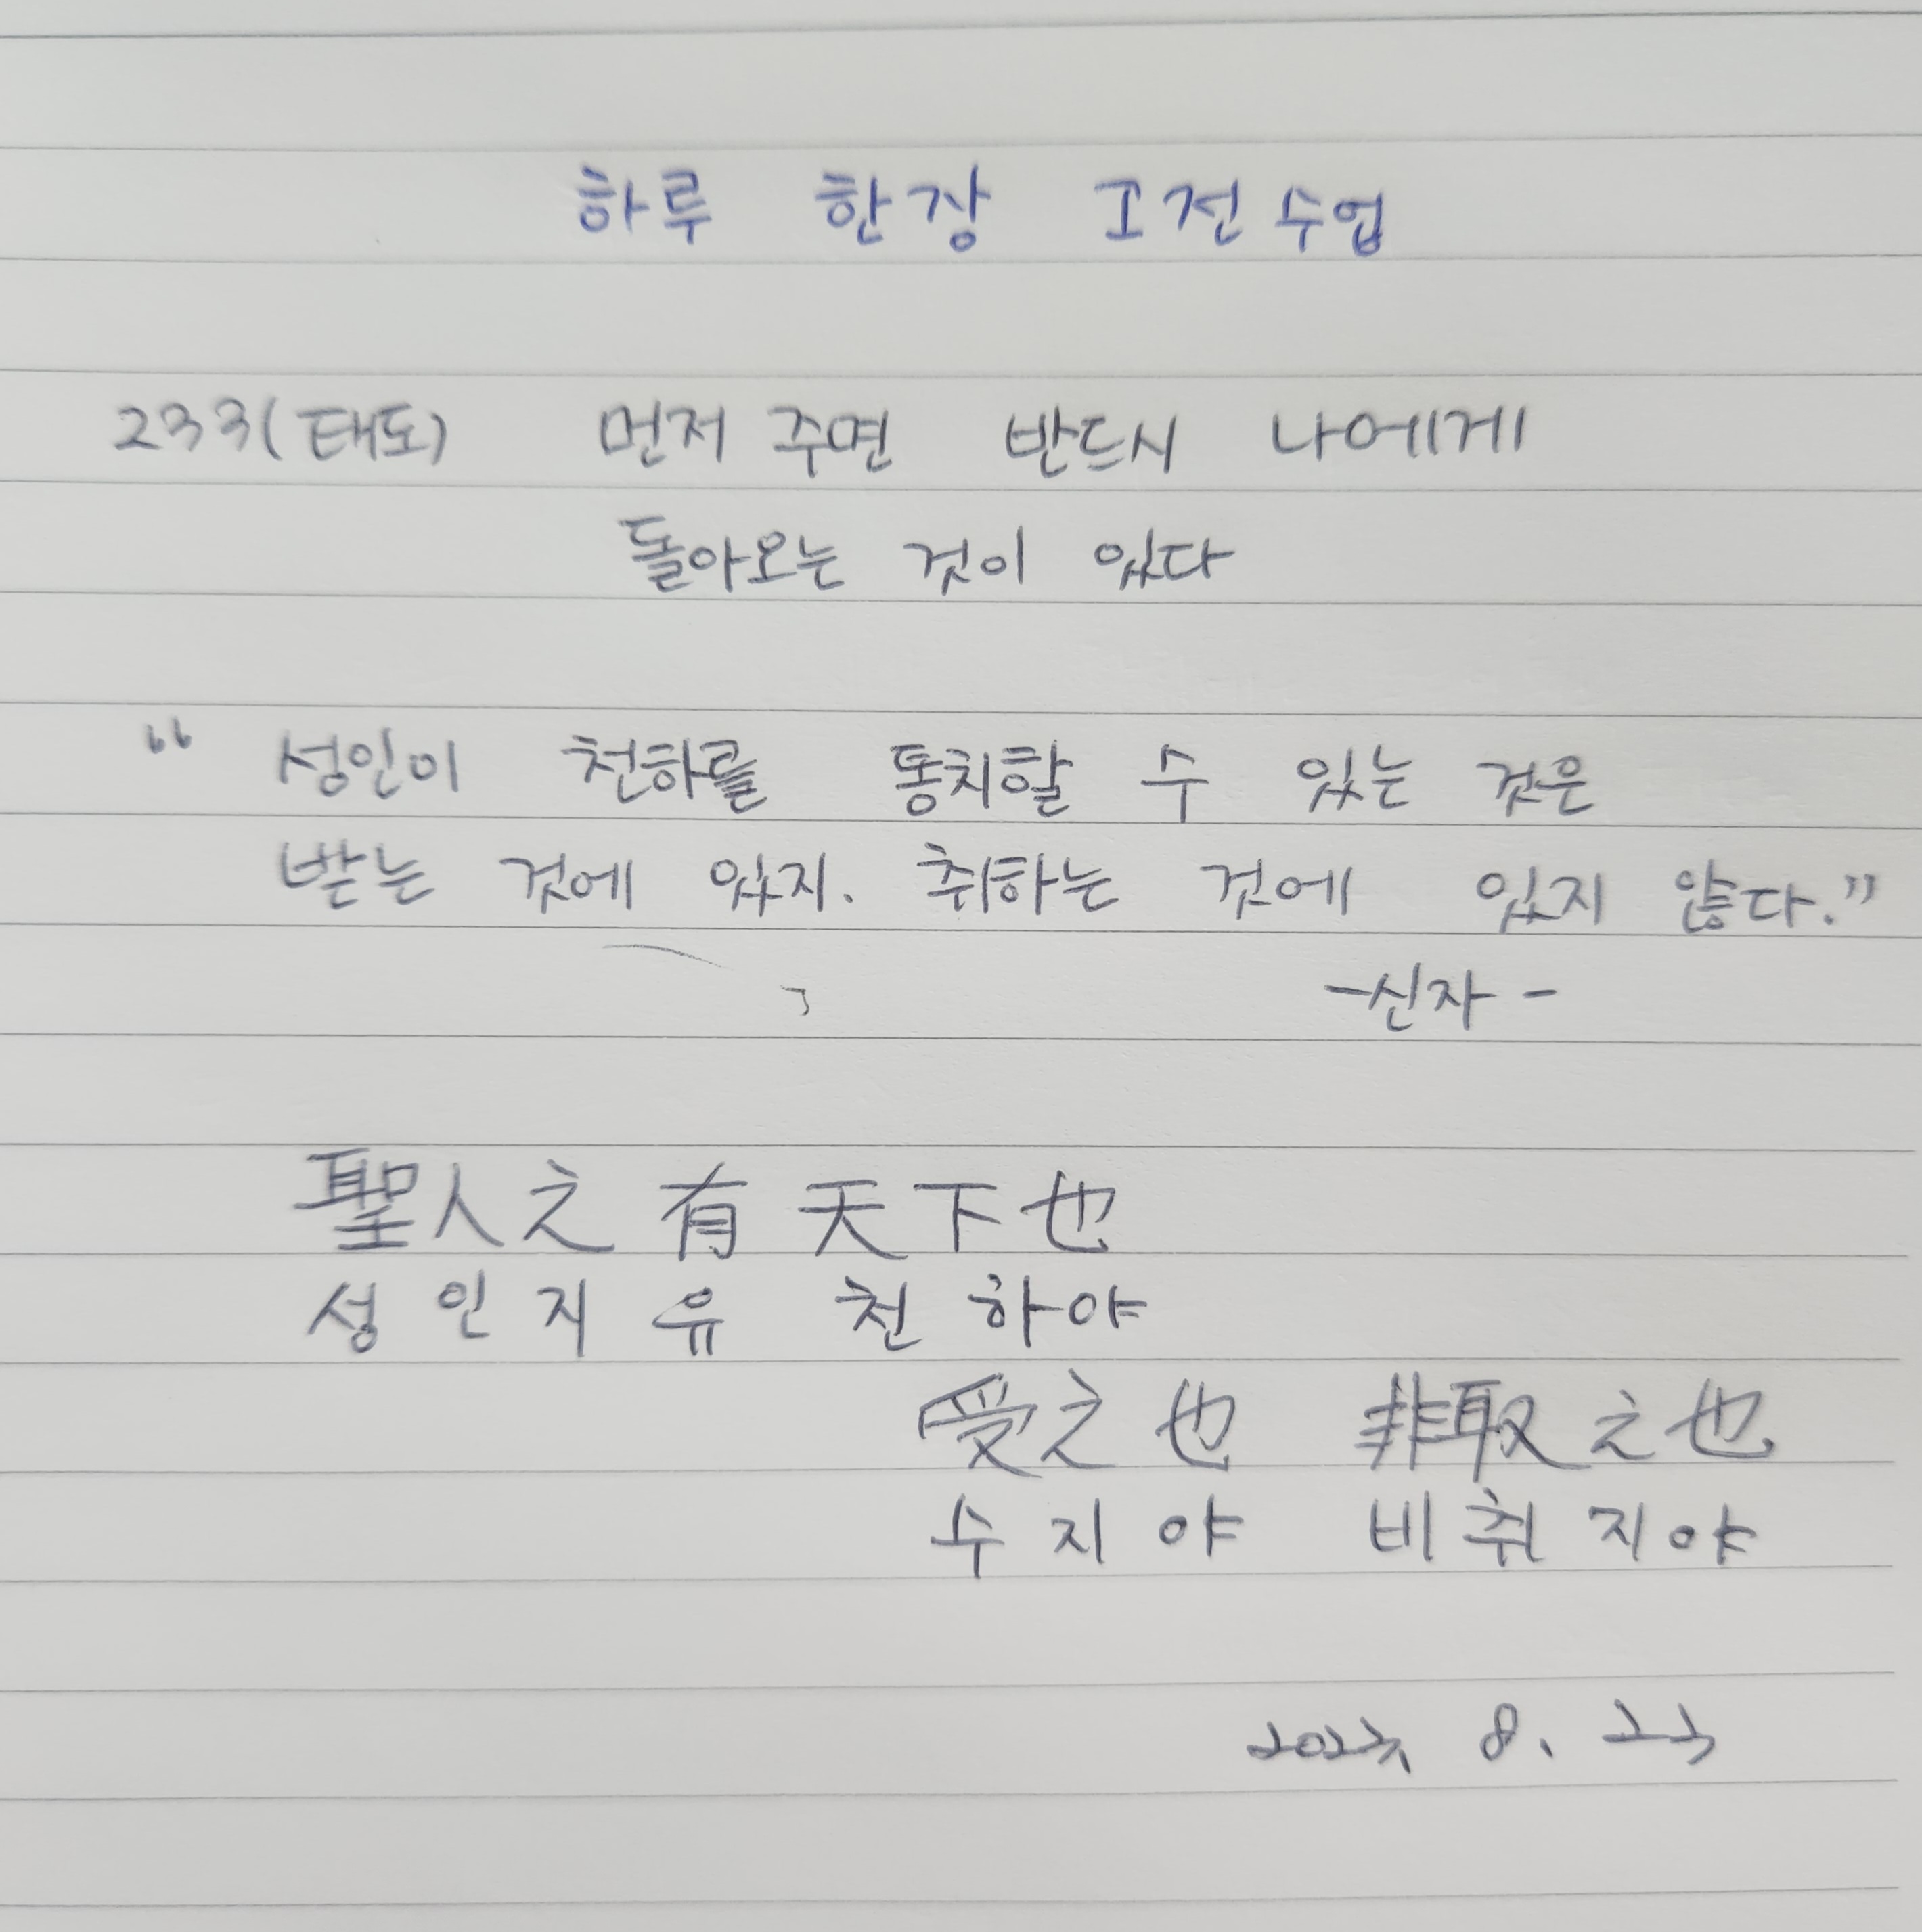 하루 한장 고전수업
233(태도) 먼저 주면 반드시 나에게
돌아오는 것이 있다
“ 성인이 천하를 통치할 수 있는 것은
받는 것에 있지. 취하는 것에 있지 않다.”
-신자-
聖人之有天下也
성인지유 천하야
受之也 非取之也
수지야 비취지야
2023. 8. 23